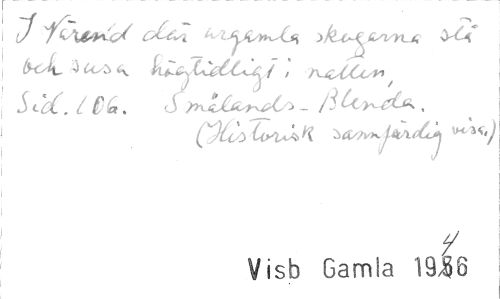 I Värend där urgamla skogarna stå
och susa högtidligt i natten,
Sid. 106. Smålands-Blenda.
(Historisk sannfärdig visa.)
Visb Gamla 1946